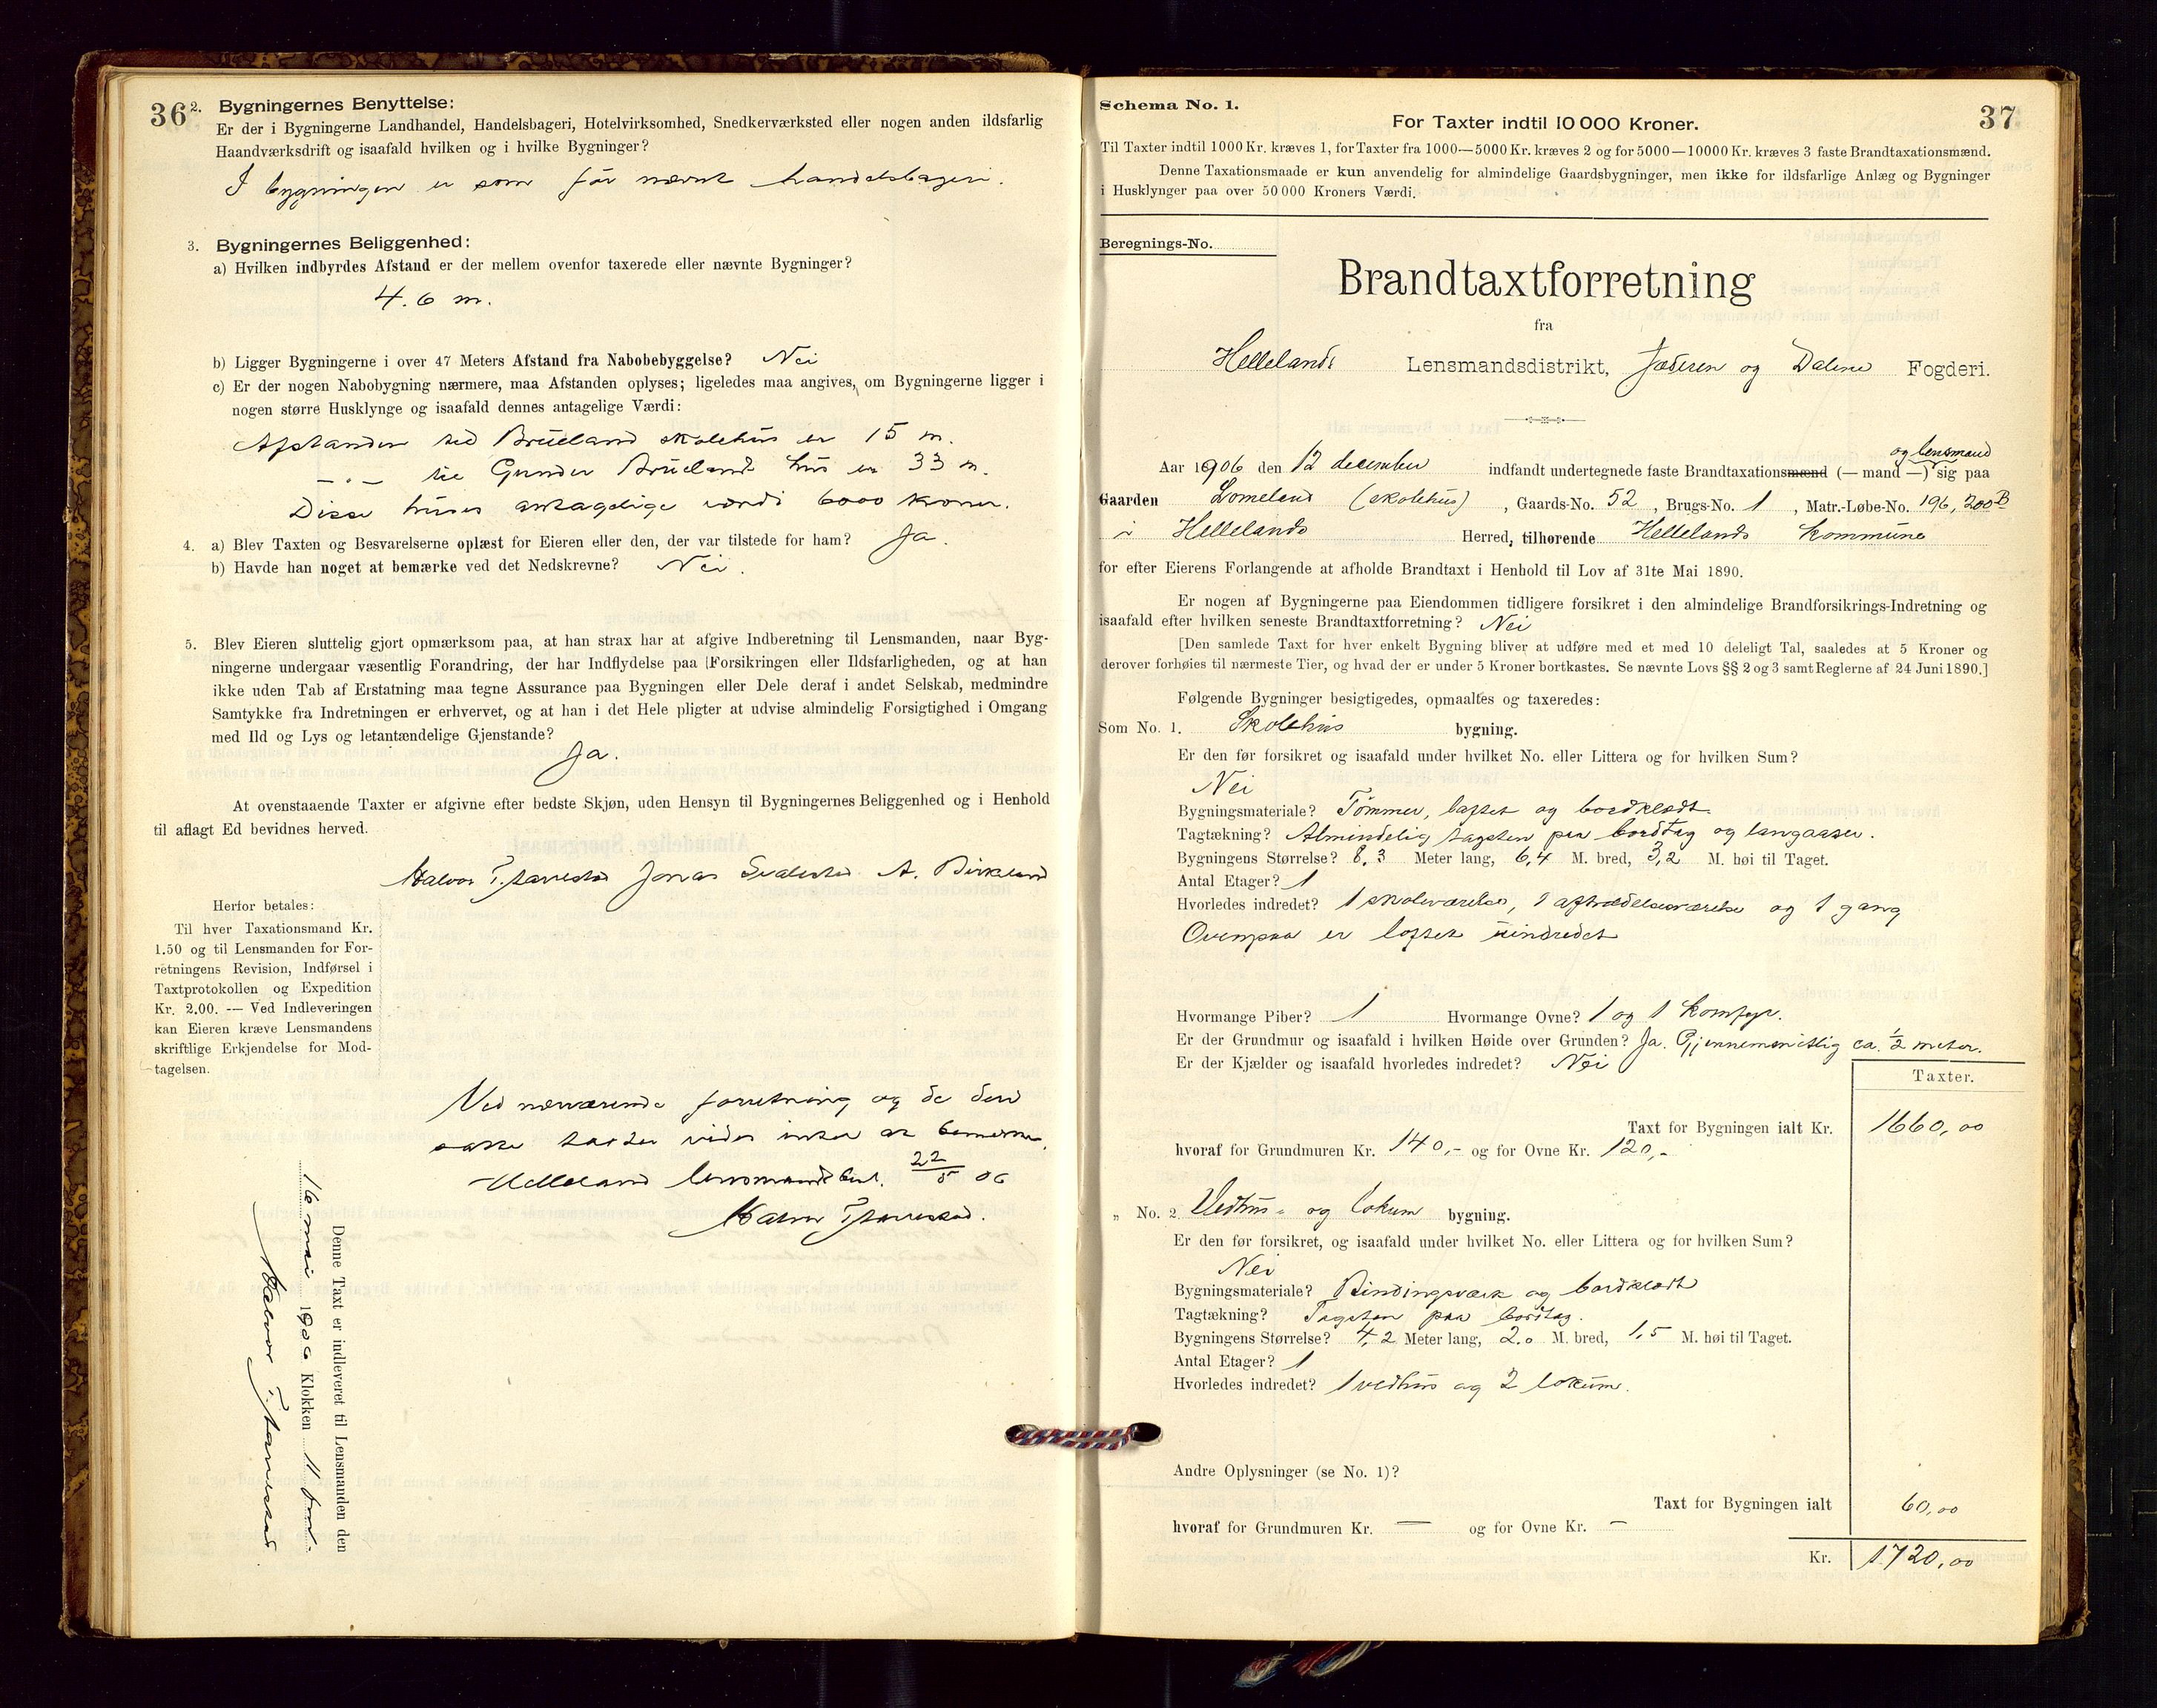 36
2. Bygningernes Benyttelse:
Er der i Bygningerne Landhandel, Handelsbageri, Hotelvirksomhed, Snedkerværksted eller nogen anden ildsfarlig
Haandværksdrift og isaafald hvilken og i hvilke Bygninger?
I bygningen er som før nævnt handelsbageri.
3. Bygningernes Beliggenhed:
a) Hvilken indbyrdes Afstand er der mellem ovenfor taxerede eller nævnte Bygninger?
4.6 m.
b) Ligger Bygningerne i over 47 Meters Afstand fra Nabobebyggelse? Nei
c) Er der nogen Nabobygning nærmere, maa Afstanden oplyses; ligeledes maa angives, om Bygningerne ligger i
nogen større Husklynge og isaafald dennes antagelige Værdi:
Afstanden ted Brueland skolehus er 15 m.
—"— til Gunder Bruelands hus er 33 m.
Disse huses antagelige værdi 6000 kroner.
4. a) Blev Taxten og Besvarelserne oplæst for Eieren eller den, der var tilstede for ham? Ja.
b) Havde han noget at bemærke ved det Nedskrevne? Nei.
5. Blev Eieren sluttelig gjort opmærksom paa, at han strax har at afgive Indberetning til Lensmanden, naar Byg-
ningerne undergaar væsentlig Forandring, der har Indflydelse paa Forsikringen eller Ildsfarligheden, og at han
ikke uden Tab af Erstatning maa tegne Assurance paa Bygningen eller Dele deraf i andet Selskab, medmindre
Samtykke fra Indretningen er erhvervet, og at han i det Hele pligter at udvise almindelig Forsigtighed i Omgang
med Ild og Lys og letantændelige Gjenstande?
Ja.
At ovenstaaende Taxter er afgivne efter bedste Skjøn, uden Hensyn til Bygningernes Beliggenhed og i Henhold
til aflagt Ed bevidnes herved.
Halvor T. Jonas A. Birkeland
Herfor betales:
Til hver Taxationsmand Kr.
1.50 og til Lensmanden for For-
retningens Revision, Indførsel i
Taxtprotokollen og Expedition
Kr. 2.00. — Ved Indleveringen
kan Eieren kræve Lensmandens
skriftlige Erkjendelse for Mod-
tagelsen.
Ved nærværende forretning og de deri
satte taxter vides intet at bemerke.
Helleland lensmandsbest. 22/5 06
Halvor T.
Denne Taxt er indleveret til Lensmanden den
16 mai 1906 Klokken 11 form.
Halvor T.
Schema No. 1.
37
For Taxter indtil 10 000 Kroner.
Til Taxter indtil 1000 Kr. kræves 1, for Taxter fra 1000—5000 Kr. kræves 2 og for 5000—10000 Kr. kræves 3 faste Brandtaxationsmænd.
Denne Taxationsmaade er kun anvendelig for almindelige Gaardsbygninger, men ikke for ildsfarlige Anlæg og Bygninger
i Husklynger paa over 50 000 Kroners Værdi.
Beregnings-No.
Brandtaxtforretning
fra
Hellelands Lensmandsdistrikt, Jæderen og Dalene Fogderi.
og lensmand
Aar 1906 den 12 december indfandt undertegnede faste Brandtaxationsmænd (— mand —) sig paa
Gaarden Lomeland (skolehus), Gaards-No. 52, Brugs-No. 1, Matr.-Løbe-No. 196, 200B
i Hellelands Herred, tilhørende Hellelands Kommune
for efter Eierens Forlangende at afholde Brandtaxt i Henhold til Lov af 31te Mai 1890.
Er nogen af Bygningerne paa Eiendommen tidligere forsikret i den almindelige Brandforsikrings-Indretning og
isaafald efter hvilken seneste Brandtaxtforretning? Nei
[Den samlede Taxt for hver enkelt Bygning bliver at udføre med et med 10 deleligt Tal, saaledes at 5 Kroner og
derover forhøies til nærmeste Tier, og hvad der er under 5 Kroner bortkastes. Se nævnte Lovs §§ 2 og 3 samt Reglerne af 24 Juni 1890.]
Følgende Bygninger besigtigedes, opmaaltes og taxeredes:
Som No. 1. Skolehus bygning.
Er den før forsikret og isaafald under hvilket No. eller Littera og for hvilken Sum?
Nei
Bygningsmateriale? Tømmer, laftet og bordklædt.
Tagtækning? Almindelig tagsten paa bordtag og langaaser.
Bygningens Størrelse? 8,3 Meter lang, 6,4 M. bred, 3,2 M. høi til Taget.
Antal Etager? 1
Hvorledes indredet? 1 skoleværelse, 1 aftrædelsesværelse og 1 gang
Ovenpaa er loftet uindredet
Hvormange Piber? 1 Hvormange Ovne? 1 og 1 komfyr.
Er der Grundmur og isaafald i hvilken Høide over Grunden? Ja. Gjennemsnitlig ca. 1/2 meter.
Er der Kjælder og isaafald hvorledes indredet? Nei
Taxter.
Taxt for Bygningen ialt Kr. 1660,00
hvoraf for Grundmuren Kr. 140,- og for Ovne Kr. 120,-
„ No. 2 Vedhus- og lokum bygning.
Er den før forsikret, og isaafald under hvilket No. eller Littera og for hvilken Sum?
Nei
Bygningsmateriale? Bindingsværk og bordklædt
Tagtækning? Tagsten paa bordtag.
Bygningens Størrelse? 4,2 Meter lang, 2.0 M. bred, 1,5 M. høi til Taget.
Antal Etager? 1
Hvorledes indredet? 1 vedhus og 2 lokum.
Andre Oplysninger (se No. 1)?
Taxt for Bygningen ialt 60,00
hvoraf for Grundmuren Kr. — og for Ovne Kr. —
Kr. 1720,00